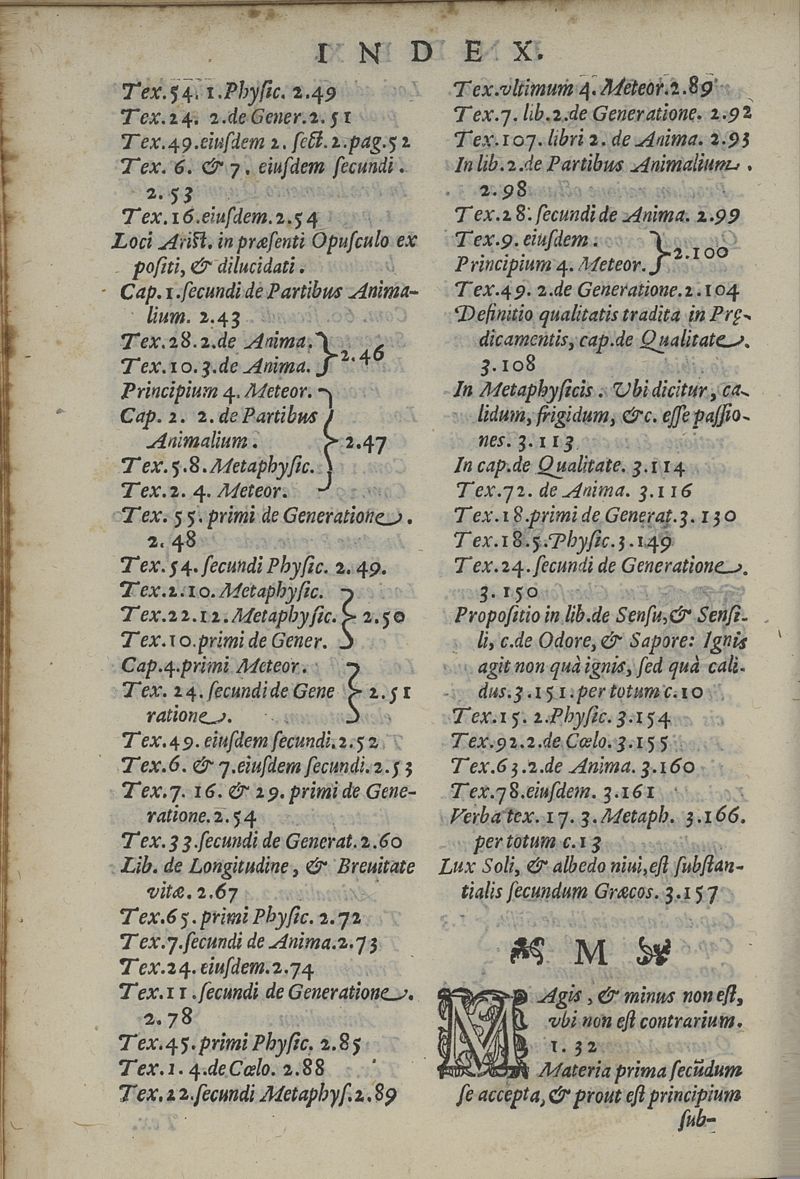 INDEX.
Tex.54. 1.Phyſic. 2.49
Tex.24. 2.de Gener.2.51
Tex.49.eiuſdem 2. ſect.2.pag.52
Tex. 6. & 7. eiuſdem ſecundi.
2.53
Tex.16.eiuſdem.2.54
Loci Ariſt. in præſenti Opuſculo ex
poſiti, & dilucidati.
Cap.1.ſecundi de Partibus Anima-
lium. 2.43
Tex.28.2.de Anima.
Tex.10.3.de Anima. } 2.46
Principium 4. Meteor.
Cap. 2. 2. de Partibus
Animalium. } 2.47
Tex.5.8.Metaphyſic.
Tex.2. 4. Meteor.
Tex. 55. primi de Generatione.
2.48
Tex.54. ſecundi Phyſic. 2.49.
Tex.2.10.Metaphyſic.
Tex.22.12.Metaphyſic. } 2.50
Tex.10.primi de Gener.
Cap.4.primi Meteor.
Tex. 24. ſecundi de Gene } 2.51
ratione.
Tex.49. eiuſdem ſecundi.2.52
Tex.6. & 7.eiuſdem ſecundi.2.53
Tex.7. 16. & 29. primi de Gene-
ratione.2.54
Tex.33.ſecundi de Generat.2.60
Lib. de Longitudine, & Breuitate
vitæ.2.67
Tex.65. primi Phyſic. 2.72
Tex.7.ſecundi de Anima.2.73
Tex.24. eiuſdem.2.74
Tex.11.ſecundi de Generatione.
2.78
Tex.45.primi Phyſic. 2.85
Tex.1. 4.de Cœlo. 2.88
Tex.22.ſecundi Metaphyſ.2.89
Tex.vltimum 4. Meteor.2.89
Tex.7. lib.2.de Generatione. 2.92
Tex.107. libri 2. de Anima. 2.93
In lib.2.de Partibus Animalium.
2.98
Tex.28. ſecundi de Anima. 2.99
Tex.9. eiuſdem.
Principium 4. Meteor. } 2.100
Tex.49. 2.de Generatione.2.104
Definitio qualitatis tradita in Prę-
dicamentis, cap.de Qualitate.
3.108
In Metaphyſicis. Vbi dicitur, ca-
lidum, frigidum, &c. eſſe paſſio-
nes. 3.113
In cap.de Qualitate. 3.114
Tex.72. de Anima. 3.116
Tex.18.primi de Generat.3.130
Tex.18.5.Phyſic.3.149
Tex.24. ſecundi de Generatione.
3.150
Propoſitio in lib.de Senſu,& Senſi-
li, c.de Odore, & Sapore: Ignis
agit non quà ignis, ſed quà cali-
dus.3.151.per totum c.10
Tex.15. 2.Phyſic.3.154
Tex.92.2.de Cœlo.3.155
Tex.63.2.de Anima. 3.160
Tex.78.eiuſdem. 3.161
Verba tex. 17. 3.Metaph. 3.166.
per totum c.13
Lux Soli, & albedo niui,eſt ſubſtan-
tialis ſecundum Græcos. 3.157
M
MAgis, & minus non eſt,
vbi non eſt contrarium.
1. 32
Materia prima ſecũdum
ſe accepta, & prout eſt principium
ſub-